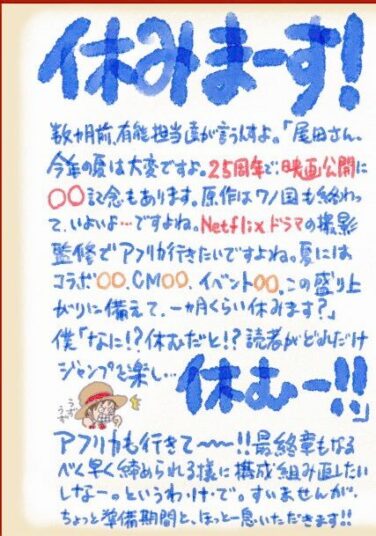 休みまーす!
数カ月前、有能担当達が言うんすよ。「尾田さん、
今年の夏は大変ですよ。25周年で、映画公開に
〇〇記念もあります。原作はワノ国も終わっ
て、いよいよ…ですよね。Netflixドラマの撮影
監修でアフリカ行きたいですよね。夏には
コラボ〇〇、CM〇〇、イベント〇〇。この盛り上
がりに備えて、一カ月くらい休みます?」
僕「なに!?休むだと!?読者がどれだけ
ジャンプを楽し…
休むー!!」
うずうず
アフリカも行きて〜〜!!最終章もなる
べく早く締められる様に構成組み直したい
しなー。というわ・け・で。すいませんが、
ちょっと準備期間と、ほっと一息いただきます!!